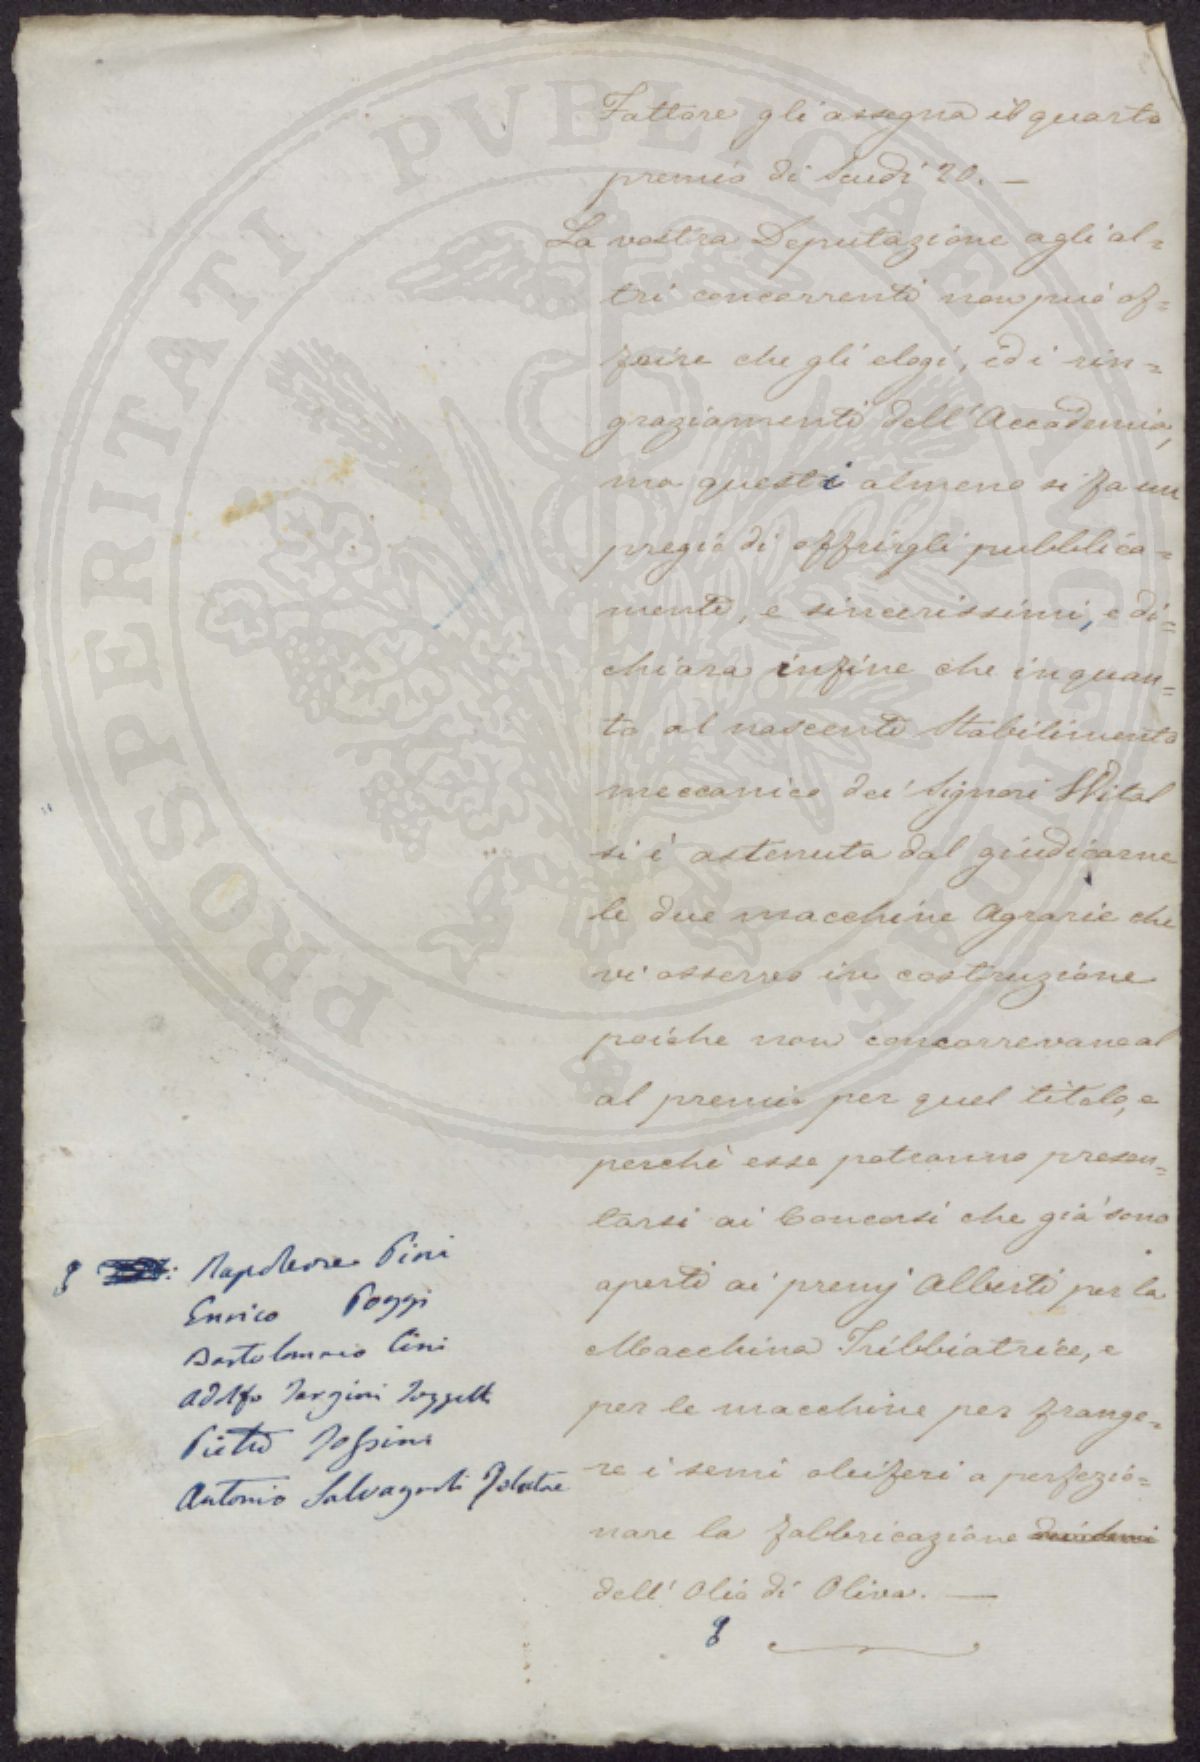 Fattore gli assegna il quarto
premio di Scudi 20. —
La vostra Deputazione agli al=
tri concorrenti non può of=
frire che gli elogi, ed i rin=
graziamenti dell'Accademia,
ma questi almeno si fa un
pregio di offrirgli pubblica=
menti, e sincerissimi, e di=
chiara infine che in quan=
to al nascente Stabilimento
meccanico dei Signori
si è astenuta dal giudicarne
le due macchine Agrarie che
vi osservò in costruzione
poichè non concorrevano al
al premio per quel titolo, e
perchè esse potranno presen=
tarsi ai Concorsi che già sono
aperti ai premj Alberti per la
Macchina Tribbiatrice, e
per le macchine per frange=
re i semi oleiferi a perfezio=
nare la fabbricazione
dell'Olio di Oliva. —
Napoleone Pini
Enrico Poggi
Bartolommeo Cini
Adolfo Targioni Tozzetti
Pietro
Antonio Salvagnoli Relatore
PROSPERITATI PVBLICAE AVGENDAE